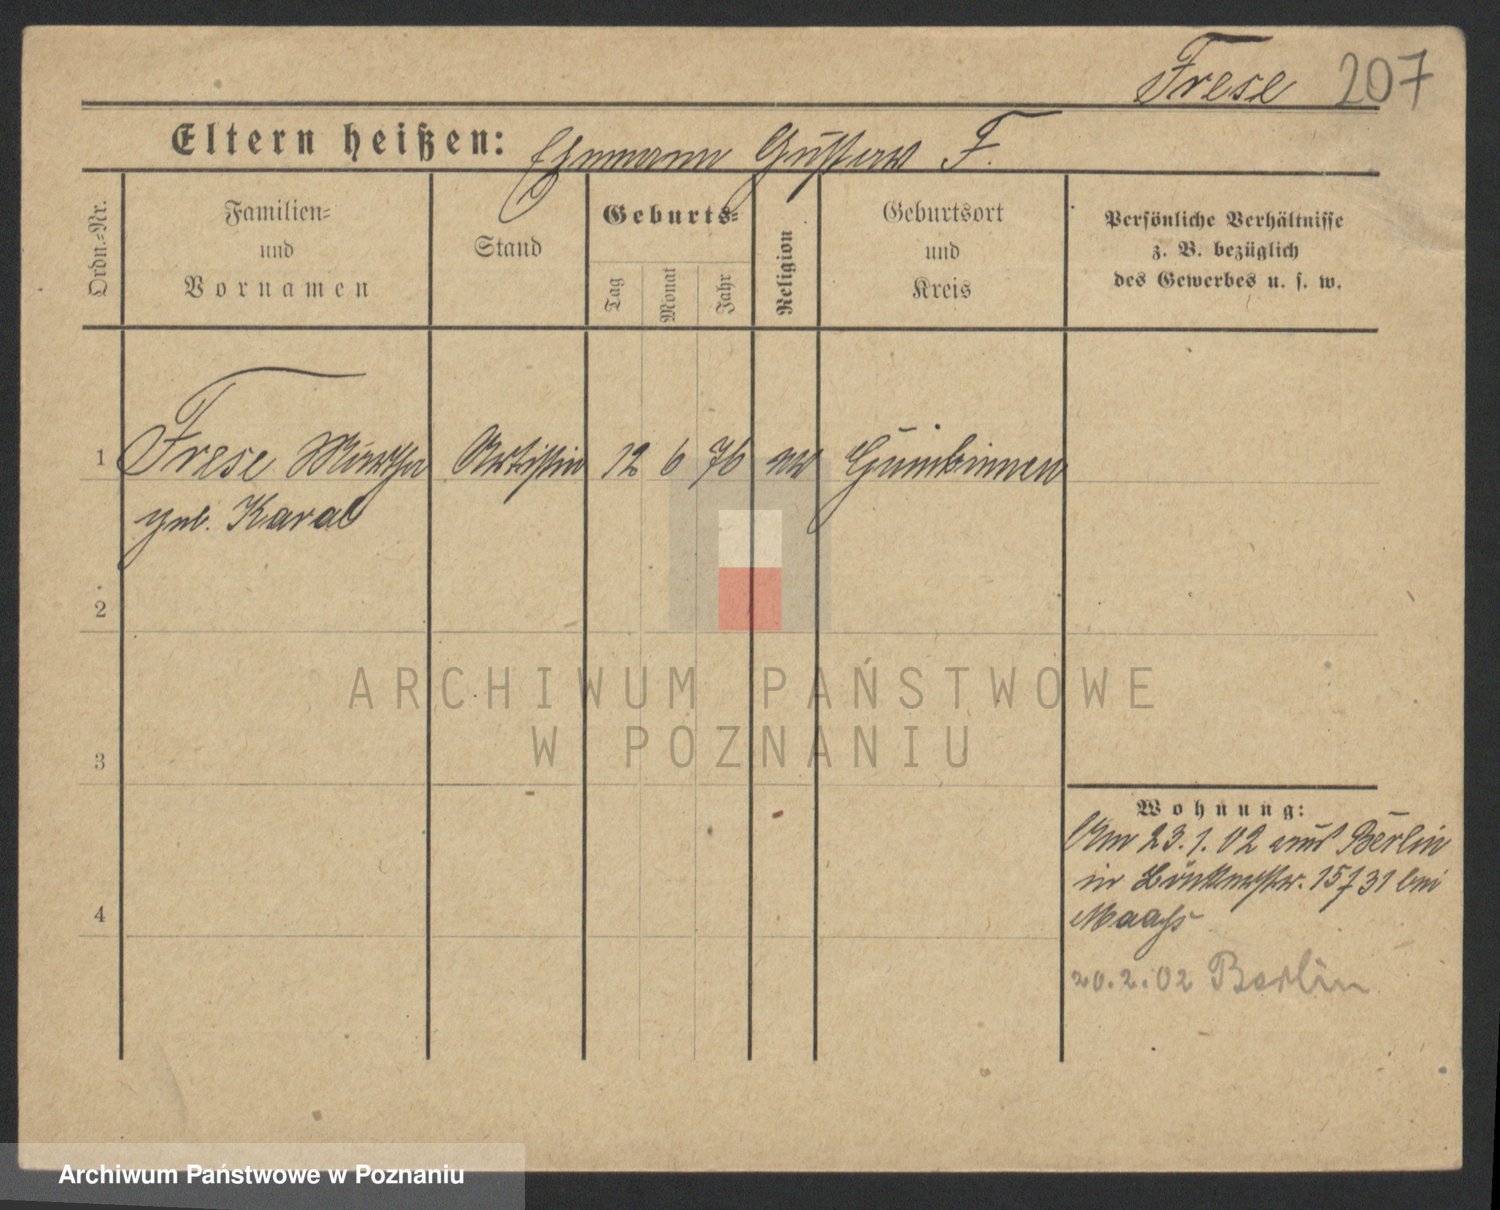 Frese 207
Eltern heißen: Ehemann Gustav F.
Ordn.-Nr.
Familien-
und
Vornamen
Stand
Geburts-
Tag
Monat
Jahr
Religion
Geburtsort
und
Kreis
Persönliche Verhältnisse
z. B. bezüglich
des Gewerbes u. s. w.
1 Frese Martha Artistin 12 6 76 ev Gumbinnen
geb. Karal
2
3
4
Wohnung:
Am 23.1.02 aus Berlin
in 15 / 31 bei
Maaß
20.2.02 Berlin
ARCHIWUM PAŃSTWOWE
W POZNANIU
Archiwum Państwowe w Poznaniu